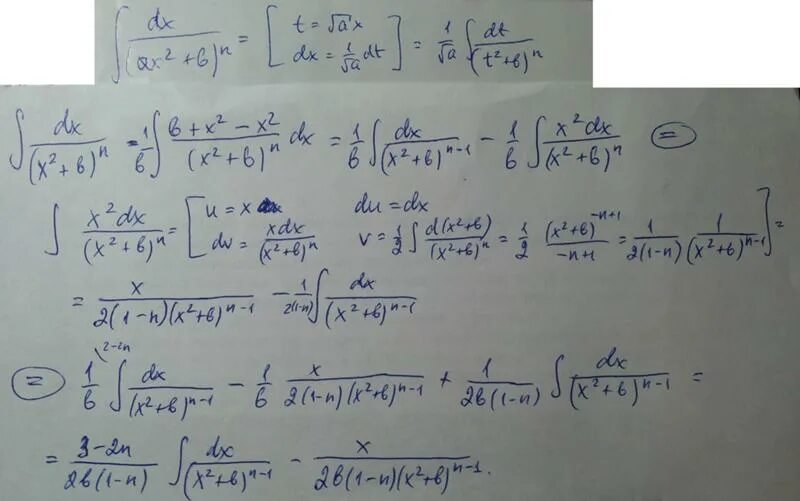 ∫ dx/(ax² + b)ⁿ = [ t = √a x, dx = 1/√a dt ] = 1/√a ∫ dt/(t² + b)ⁿ
∫ dx/(x² + b)ⁿ = 1/b ∫ (b + x² − x²)/(x² + b)ⁿ dx = 1/b ∫ dx/(x² + b)ⁿ⁻¹ − 1/b ∫ x² dx/(x² + b)ⁿ ⊜
∫ x² dx/(x² + b)ⁿ = [ u = x, du = dx, dv = x dx/(x² + b)ⁿ, v = 1/2 ∫ d(x² + b)/(x² + b)ⁿ = 1/2 (x² + b)⁻ⁿ⁺¹/(−n+1) = 1/(2(1−n)) 1/(x² + b)ⁿ⁻¹ ] =
= x/(2(1−n)(x² + b)ⁿ⁻¹) − 1/(2(1−n)) ∫ dx/(x² + b)ⁿ⁻¹
2−2n
⊜ 1/b ∫ dx/(x² + b)ⁿ⁻¹ − 1/b x/(2(1−n)(x² + b)ⁿ⁻¹) + 1/(2b(1−n)) ∫ dx/(x² + b)ⁿ⁻¹ =
= (3−2n)/(2b(1−n)) ∫ dx/(x² + b)ⁿ⁻¹ − x/(2b(1−n)(x² + b)ⁿ⁻¹).